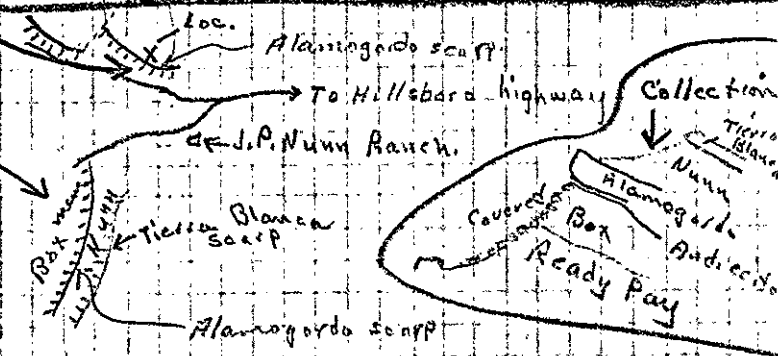 Loc.
Alamogordo scarp
To Hillsboro highway
J.P. Nunn Ranch.
Box mem
Nunn
Tierra Blanca
scarp
Alamogordo scarp
Collection
Tierra
Blanca
Nunn
Alamogordo
Covered
Box
Andrecito
Ready Pay